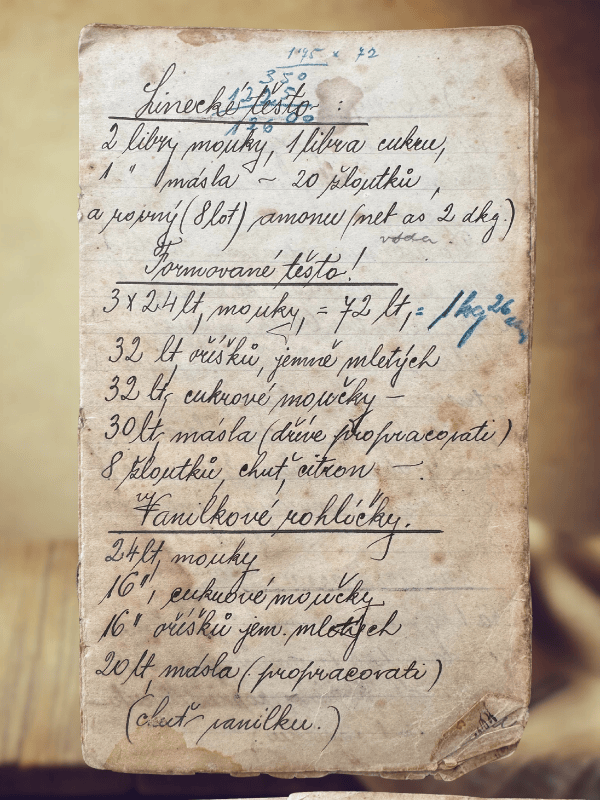 175 x 72
350
1225
12600
Linecké těsto :
2 libry mouky, 1 libra cukru,
1 " másla – 20 žloutků,
a rovný (8 lot) amonu (net as 2 dkg.)
voda.
Formované těsto!
3 x 24 lt, mouky, = 72 lt, = 1 kg 26
32 lt, oříšků, jemně mletých
32 lt, cukrové moučky –
30 lt, másla (dříve propracovati)
8 žloutků, chuť, citron –.
Vanilkové rohlíčky.
24 lt, mouky
16 ", cukrové moučky
16 " oříšků jem. mletých
20 lt másla (propracovati)
(chuť vanilku.)